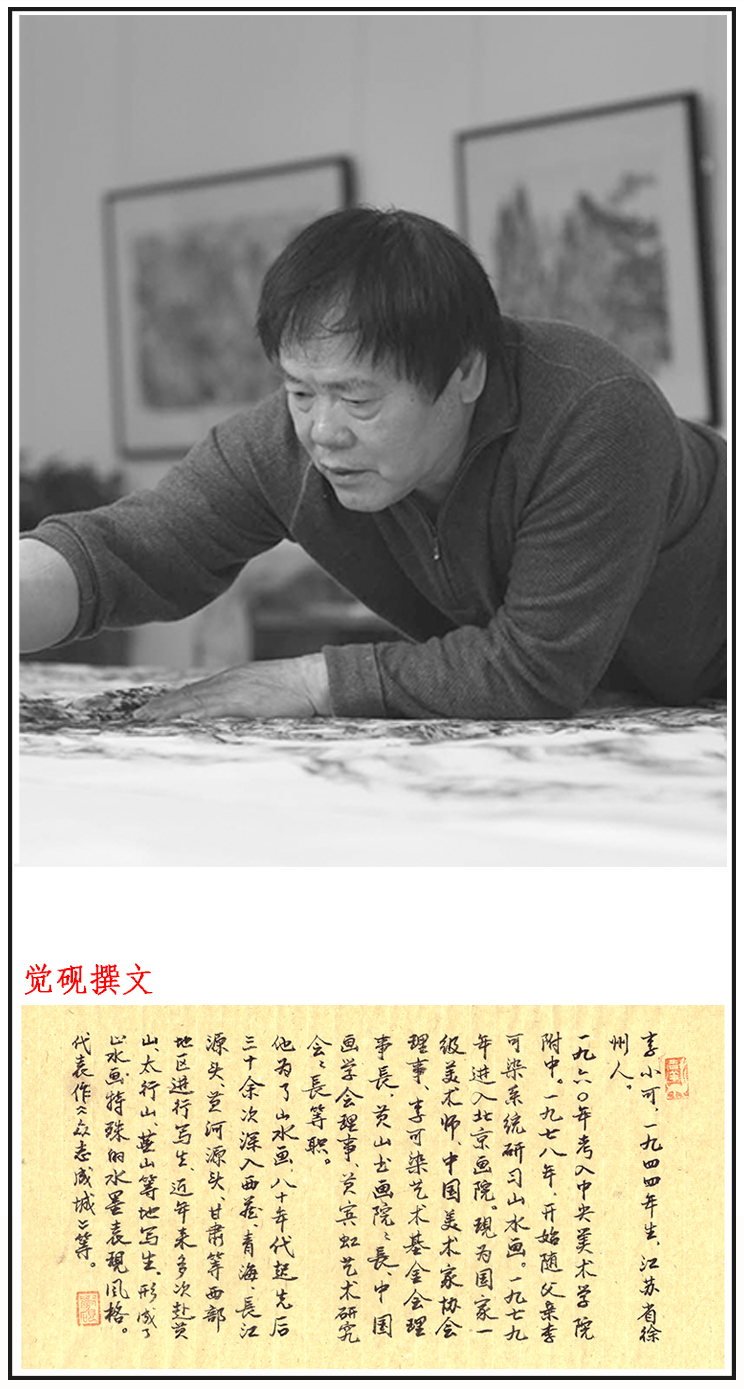 觉砚撰文
李小可，一九四四年生，江苏省徐
州人。
一九六〇年考入中央美术学院
附中。一九七八年，开始随父亲李
可染系统研习山水画。一九七九
年进入北京画院。現为国家一
级美术师，中国美术家协会
理事、李可染艺术基金会理
事長，黄山书画院院長，中国
画学会理事、黄宾虹艺术研究
会会長等职。
他为了山水画，八十年代起先后
三十余次深入西藏、青海、長江
源头、黄河源头、甘肃等西部
地区进行写生，近年来多次赴黄
山、太行山、燕山等地写生，形成了
山水画特殊的水墨表現风格。
代表作《众志成城》等。